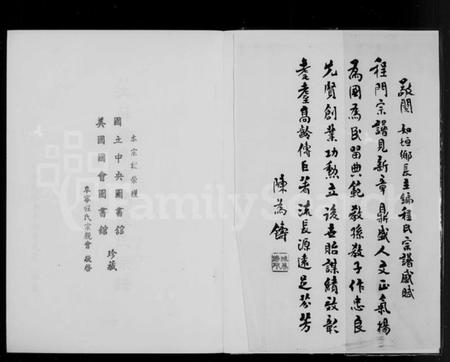 敬閱 如垣鄉長主編程氏宗譜感賦
程門宗譜見新章鼎盛人文正氣揚
為國為民留典範教孫教子作忠良
先賢創業功勳立後世貽謀績效彰
耄耋高齡傳巨著流長源遠足芬芳
陳為鑄
本宗譜榮獲
國立中央圖書館
美國國會圖書館
珍藏
本寧程氏宗親會 敬啓
FamilySearch